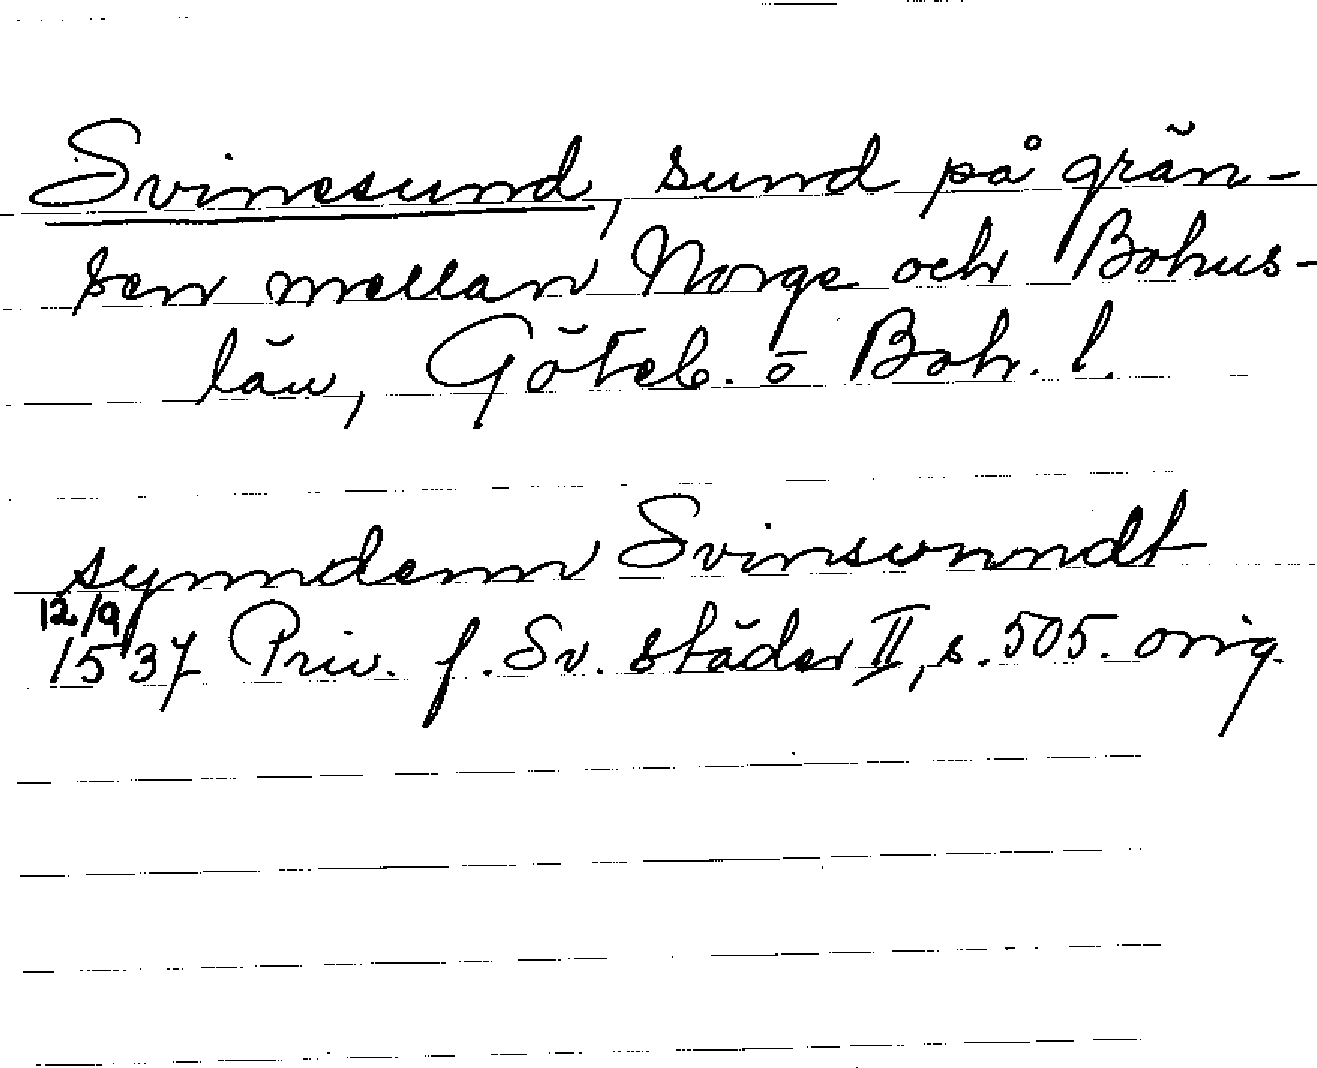 Svinesund, sund på grän-
sen mellan Norge och Bohus-
län, Göteb. o Boh. l.
synndenn Svinsunndt
12/9
1537 Priv. f. Sv. städer II, s. 505. orig.